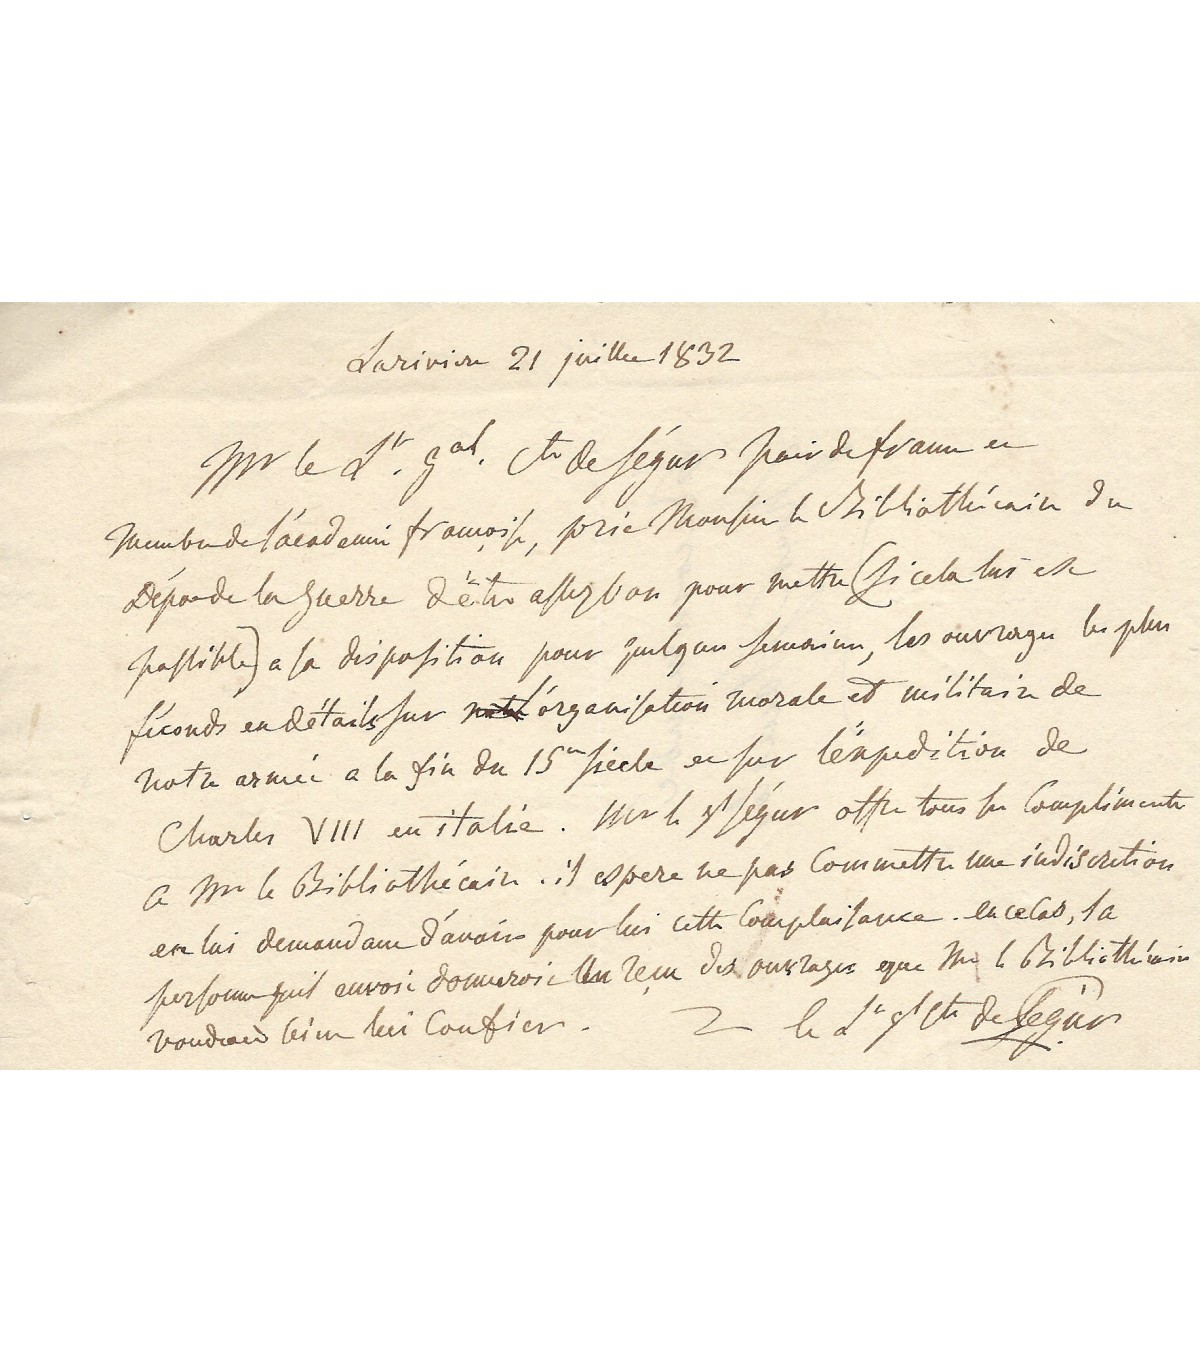 Larivière 21 juillet 1832
Mr le Lt. gal. Cte de Ségur pair de france et
Membre de l'académie françoise, prie Monsieur le Bibliothécaire du
Dépot de la guerre d'être assez bon pour mettre (si cela lui est
possible) a sa disposition pour quelques semaines, les ouvrages les plus
féconds en détails sur l'organisation morale et militaire de
notre armée a la fin du 15me siècle et sur l'éxpedition de
Charles VIII en italie. Mr le gl Ségur offre tous ses Compliments
a Mr le Bibliothécaire. il espere ne pas Commettre une indiscretion
en lui demandant d'avoir pour lui cette Complaisance. en ce cas, la
personne qu'il envoie donneroit un reçu des ouvrages que Mr le Bibliothécaire
voudroit bien lui Confier.
le Lt gl Cte de Ségur